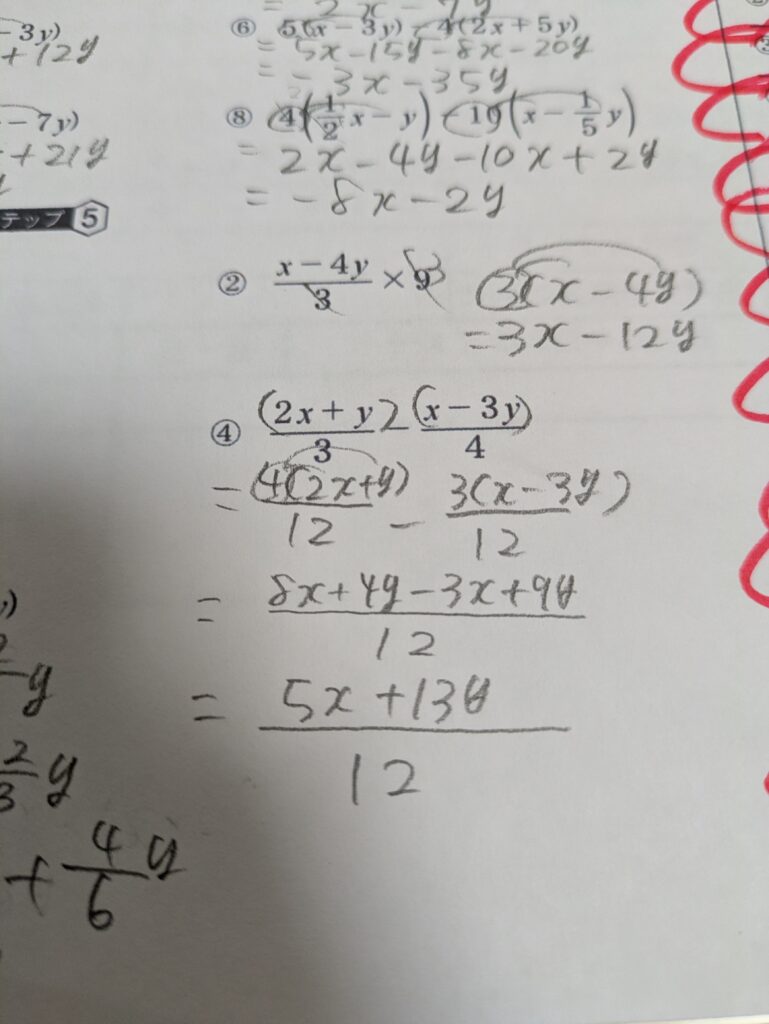 2x - 7y
- 3y)
+ 12y
⑥ 5(x - 3y) - 4(2x + 5y)
= 5x - 15y - 8x - 20y
= - 3x - 35y
- 7y)
+ 21y
⑧ 4(1/2 x - y) - 10(x - 1/5 y)
= 2x - 4y - 10x + 2y
= -8x - 2y
テップ 5
② x - 4y / 3 × 9 3 3(x - 4y)
= 3x - 12y
④ (2x + y) / 3 - (x - 3y) / 4
= 4(2x+y) / 12 - 3(x - 3y) / 12
= 8x + 4y - 3x + 9y / 12
= 5x + 13y / 12
y
2/3 y
+ 4/6 y